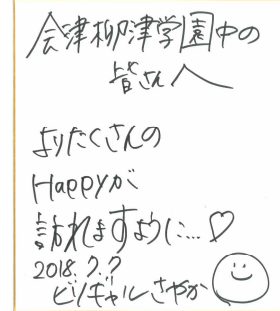 会津柳津学園中の
皆さんへ
よりたくさんの
Happyが
訪れますように…♡
2018.7.7
ビリギャル さやか